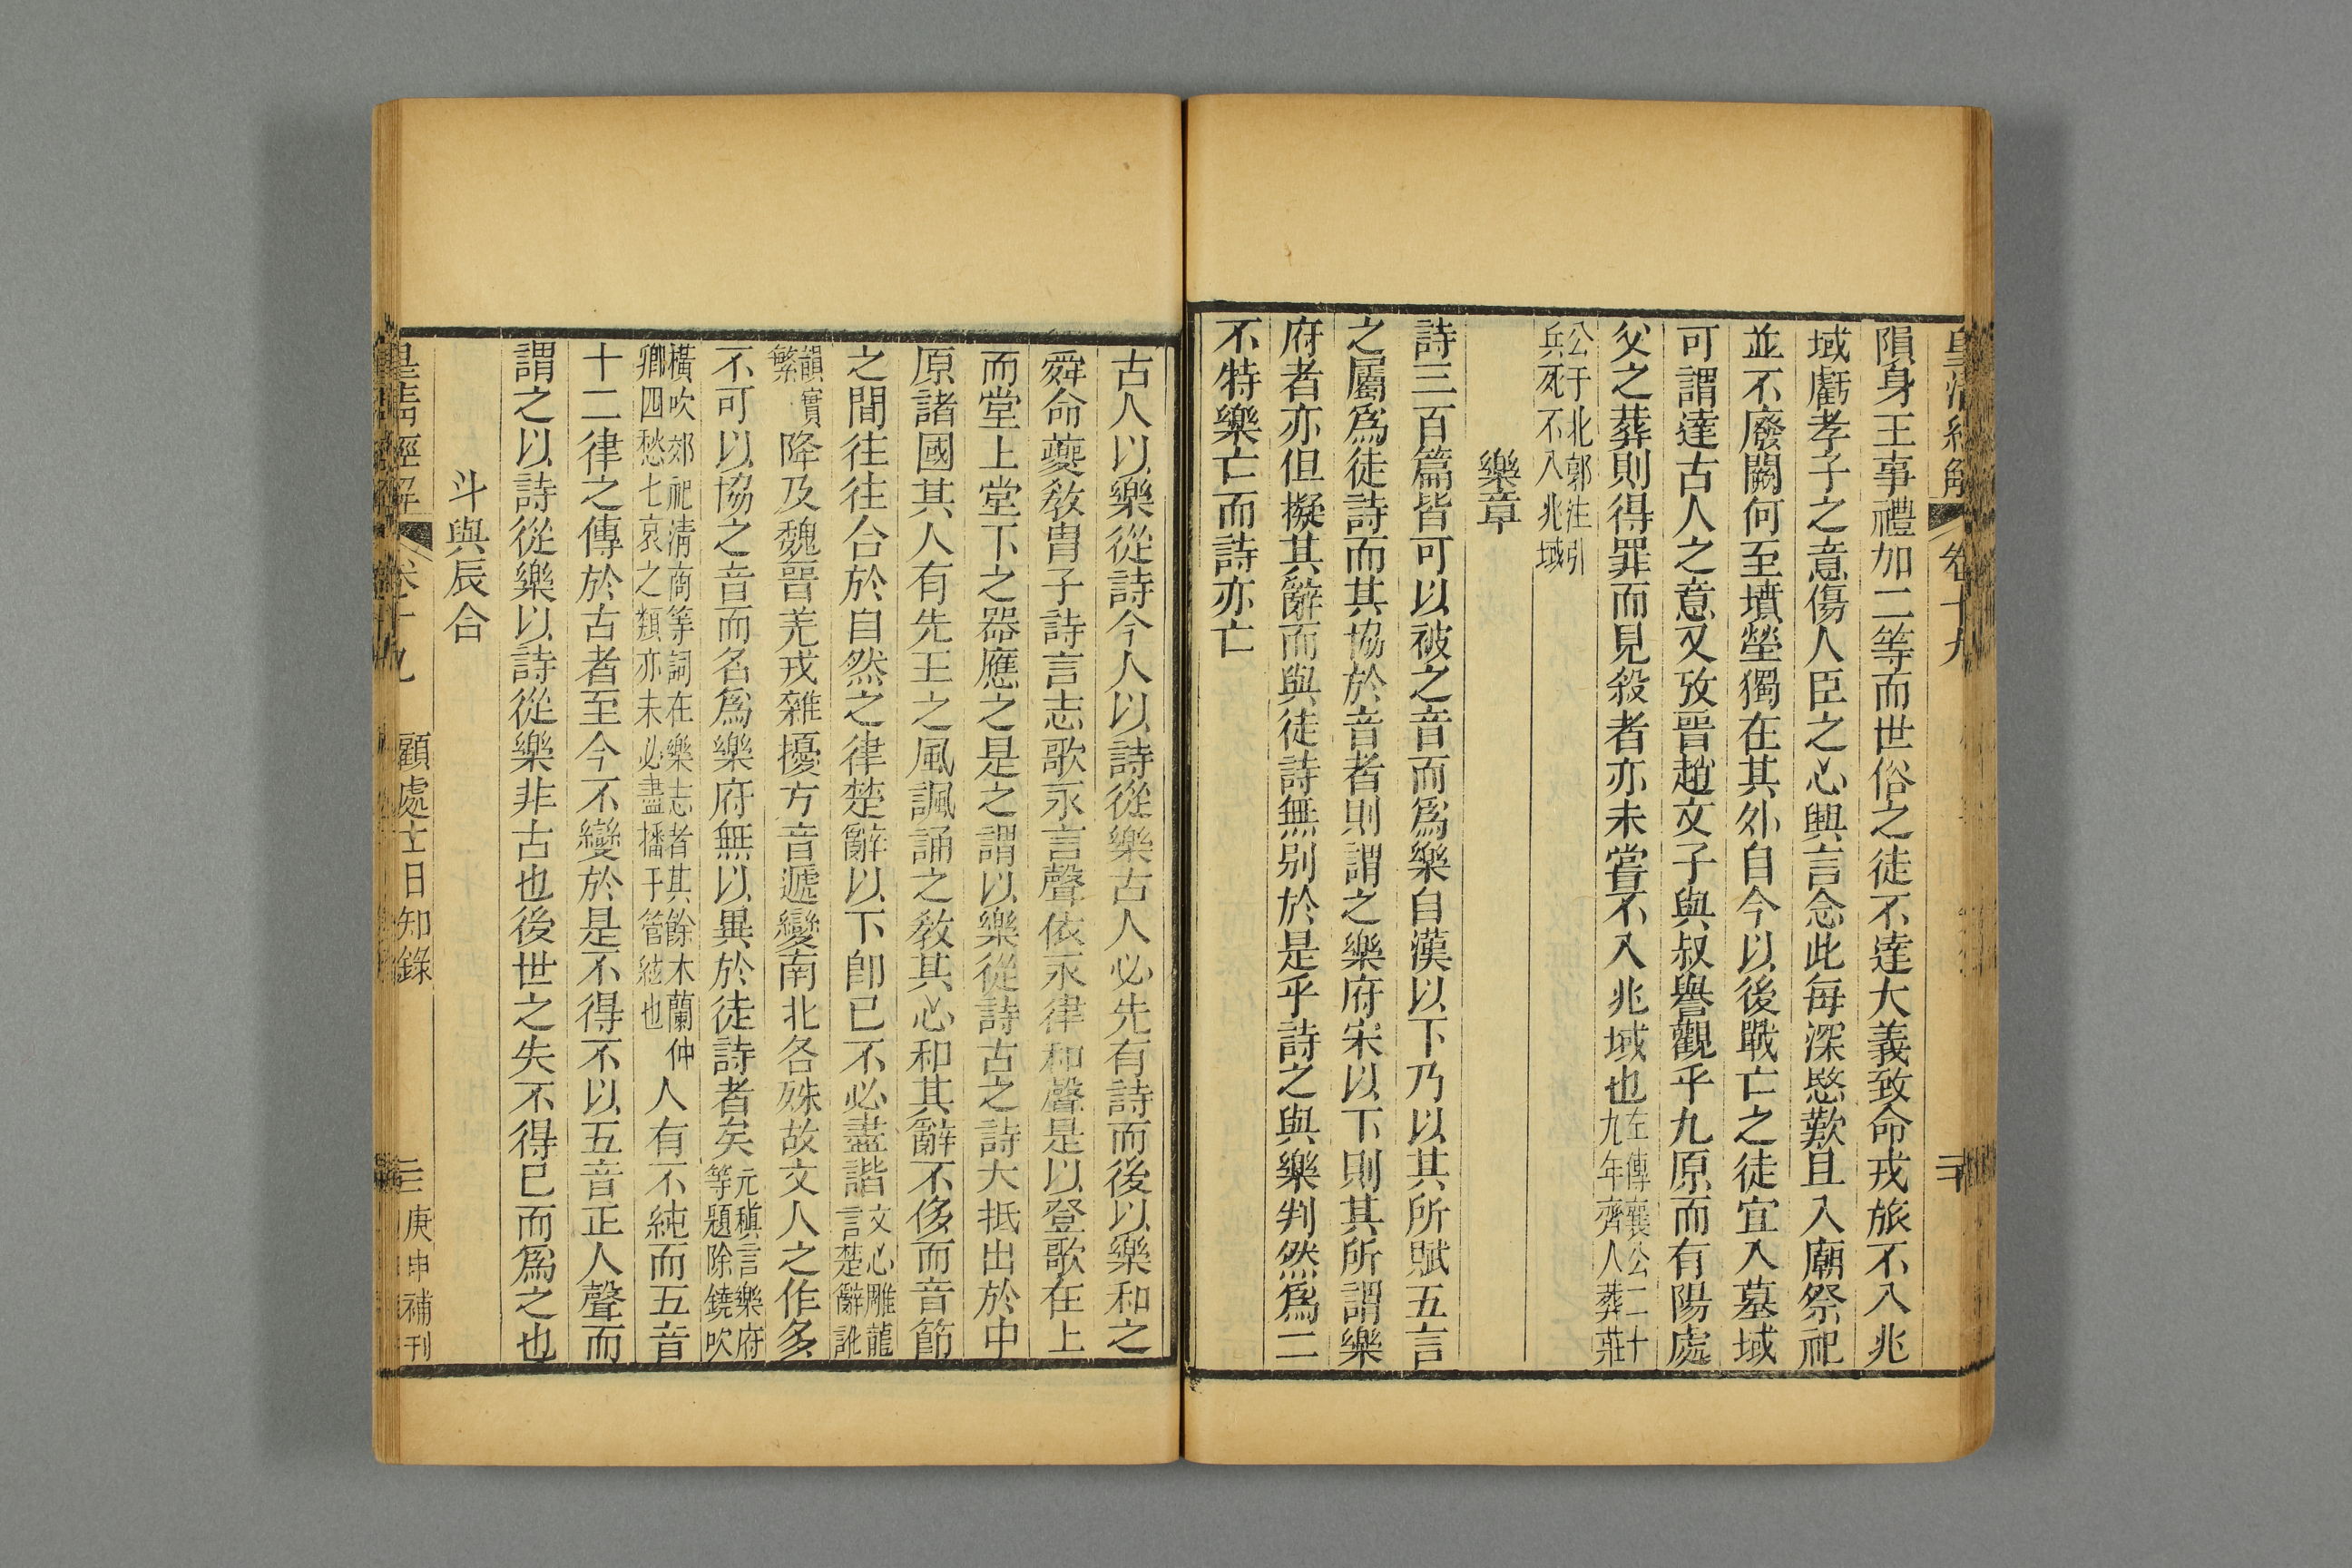 皇清經解 卷十九
隕身王事禮加二等而世俗之徒不達大義致命戎旅不入兆
域虧孝子之意傷人臣之心興言念此每深愍歎且入廟祭祀
並不廢闕何至墳塋獨在其外自今以後戰亡之徒宜入墓域
可謂達古人之意又攷晉趙文子與叔譽觀乎九原而有陽處
父之葬則得罪而見殺者亦未嘗不入兆域也左傳襄公二十九年齊人葬莊
公于北郭注引兵死不入兆域
樂章
詩三百篇皆可以被之音而爲樂自漢以下乃以其所賦五言
之屬爲徒詩而其協於音者則謂之樂府宋以下則其所謂樂
府者亦但擬其辭而與徒詩無别於是乎詩之與樂判然爲二
不特樂亡而詩亦亡
古人以樂從詩今人以詩從樂古人必先有詩而後以樂和之
舜命夔敎胄子詩言志歌永言聲依永律和聲是以登歌在上
而堂上堂下之器應之是之謂以樂從詩古之詩大抵出於中
原諸國其人有先王之風諷誦之敎其心和其辭不侈而音節
之間往往合於自然之律楚辭以下卽已不必盡諧文心雕龍言楚辭訛
韻實繁降及魏晉羌戎雜擾方音遞變南北各殊故文人之作多
不可以協之音而名爲樂府無以異於徒詩者矣元稹言樂府等題除鐃吹
橫吹郊祀淸商等詞在樂志者其餘木蘭仲卿四愁七哀之類亦未必盡播于管絃也人有不純而五音
十二律之傳於古者至今不變於是不得不以五音正人聲而
謂之以詩從樂以詩從樂非古也後世之失不得已而爲之也
斗與辰合
皇清經解 卷十九 顧處士日知錄 庚申補刊